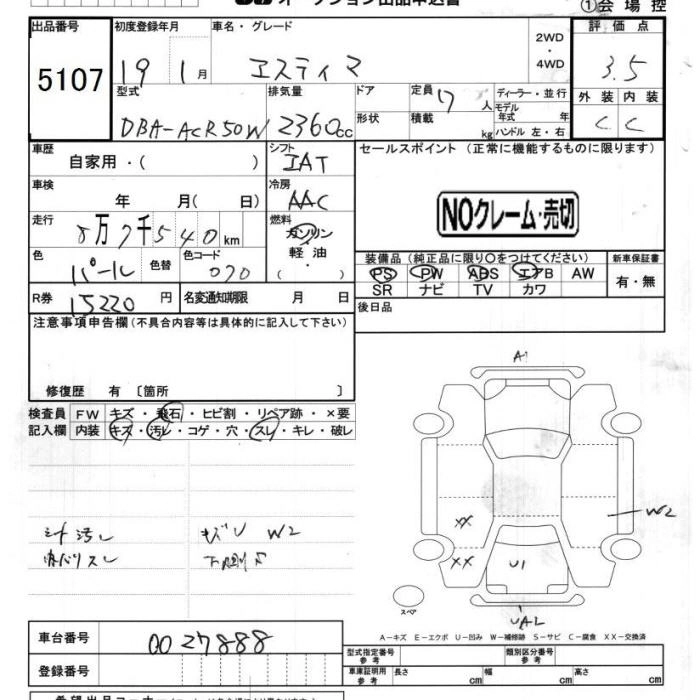 オークション出品申込書
①会場控
出品番号 初度登録年月 車名・グレード 2WD・4WD 評価点
5107 19 1月 エスティマ 3.5
型式 排気量 ドア 定員 7人 ディーラー・並行 外装 内装
DBA-ACR50W 2360cc 形状 積載 kg モデル年式 年 ハンドル 左・右 C C
車歴 シフト セールスポイント (正常に機能するものに限ります)
自家用・( ) IAT
車検 冷房
年 月( 日) AAC NOクレーム・売切
走行 燃料
8万7千540km ガソリン
色 色替 色コード 軽油 装備品 (純正品に限り○をつけてください) 新車保証書
パール 070 ・( ) PS PW ABS エアB AW 有・無
SR ナビ TV カワ
R券 15220円 名変通知期限 月 日 後日品
注意事項申告欄(不具合内容等は具体的に記入して下さい)
修復歴 有 〔箇所 〕
検査員 FW キズ・飛石・ヒビ割・リペア跡・×要
記入欄 内装 キズ・汚レ・コゲ・穴・スレ・キレ・破レ
A1
W2
XX
XX
U1
シート汚レ キズU W2
内バリスレ
スペア
UAL
A-キズ E-エクボ U-凹み W-補修跡 S-サビ C-腐食 XX-交換済
車台番号 0027888
登録番号
型式指定番号 参考 類別区分番号 参考
車庫証明用 参考 長さ cm 幅 cm 高さ cm
希望出品コーナー